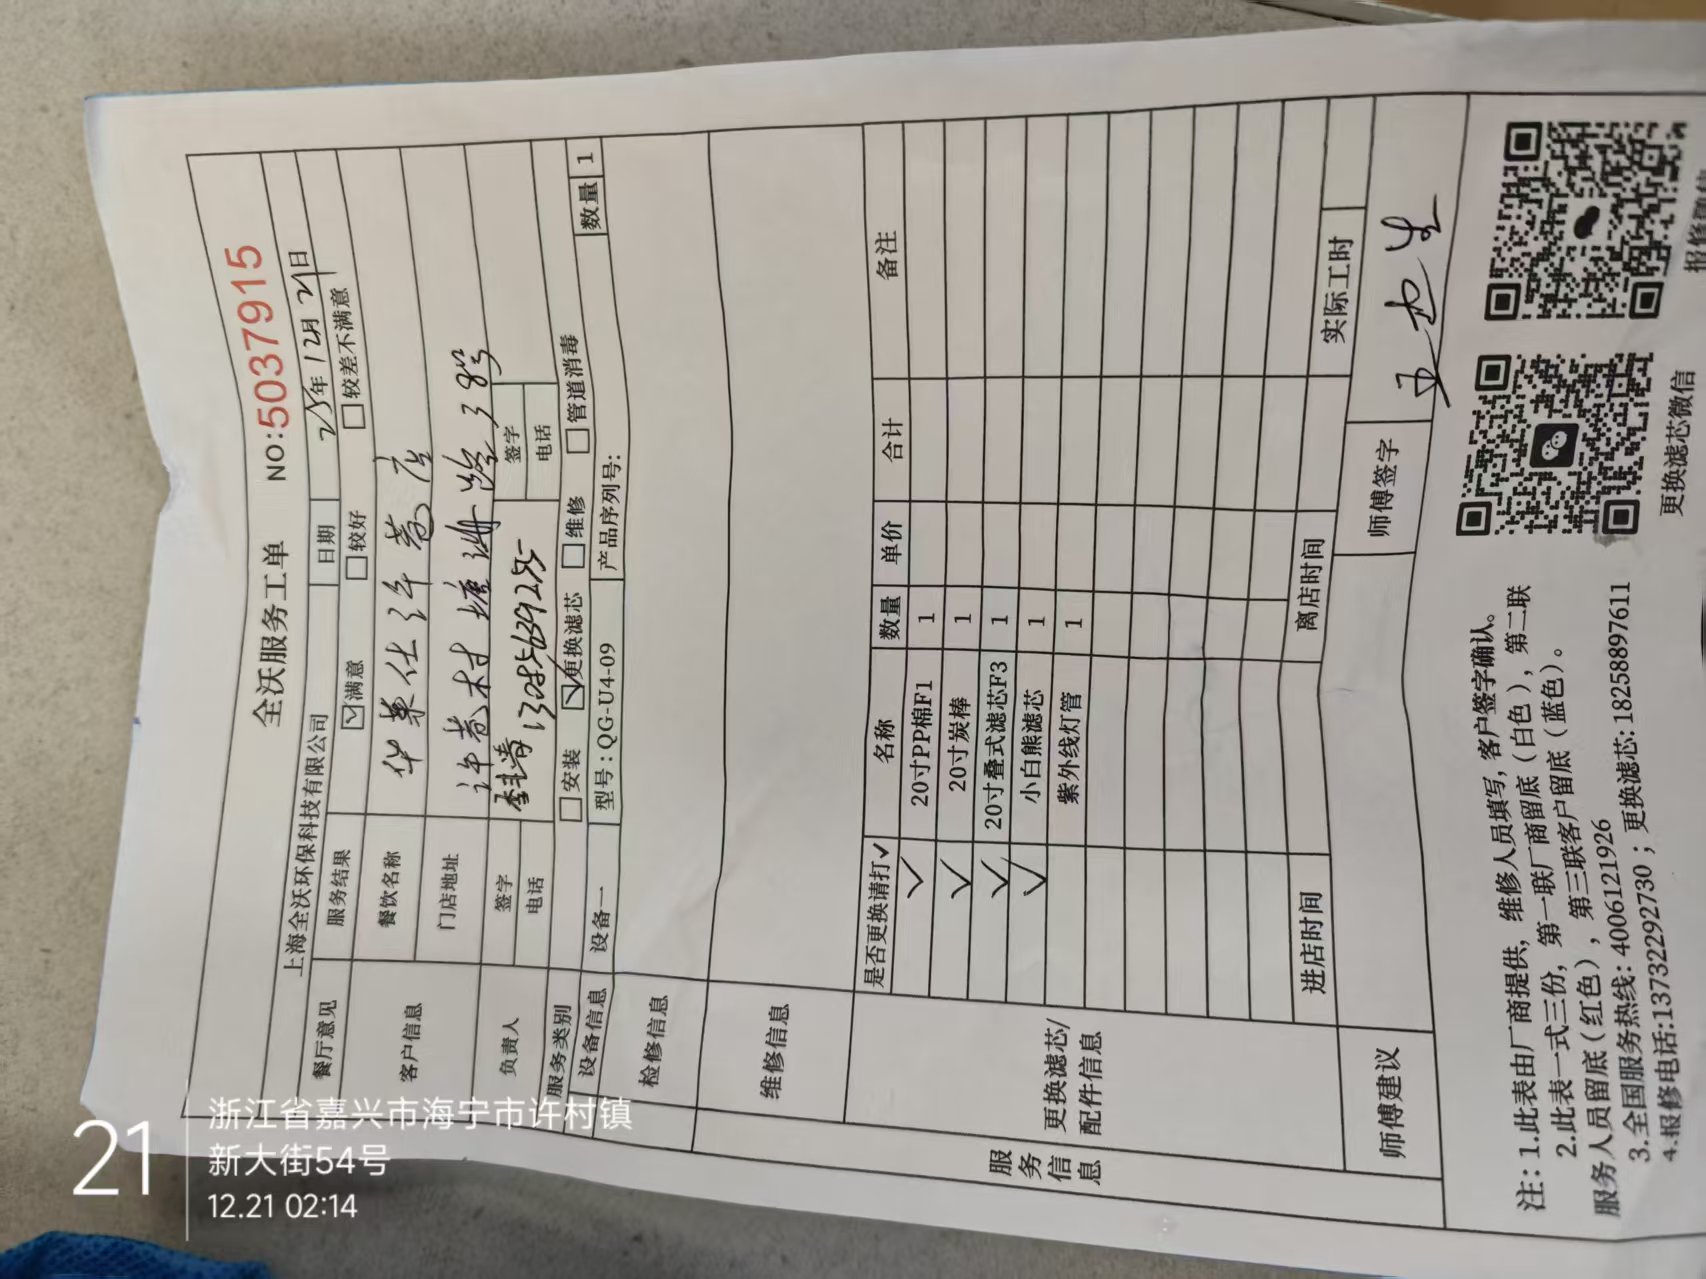 全沃服务工单 NO:5037915
上海全沃环保科技有限公司 日期 25年12月21日
餐厅意见 服务结果 ☑满意 □较好 □较差不满意
客户信息 餐饮名称 华莱仕许巷店
门店地址 许巷村塘湖路38号
负责人 签字 签字
电话 13085639255 电话
服务类别 □安装 ☑更换滤芯 □维修 □管道消毒
设备信息 设备一 型号:QG-U4-09 产品序列号: 数量 1
检修信息
维修信息
服务信息
更换滤芯/配件信息
是否更换请打✓ 名称 数量 单价 合计 备注
✓ 20寸PP棉F1 1
✓ 20寸炭棒 1
✓ 20寸叠式滤芯F3 1
✓ 小白熊滤芯 1
紫外线灯管 1
进店时间 离店时间 实际工时
师傅建议 师傅签字
注:1.此表由厂商提供,维修人员填写,客户签字确认。
2.此表一式三份,第一联厂商留底(白色),第二联
服务人员留底(红色),第三联客户留底(蓝色)。
3.全国服务热线:4006121926
4.报修电话:13732292730;更换滤芯:18258897611
更换滤芯微信
报修微信
21
浙江省嘉兴市海宁市许村镇
新大街54号
12.21 02:14